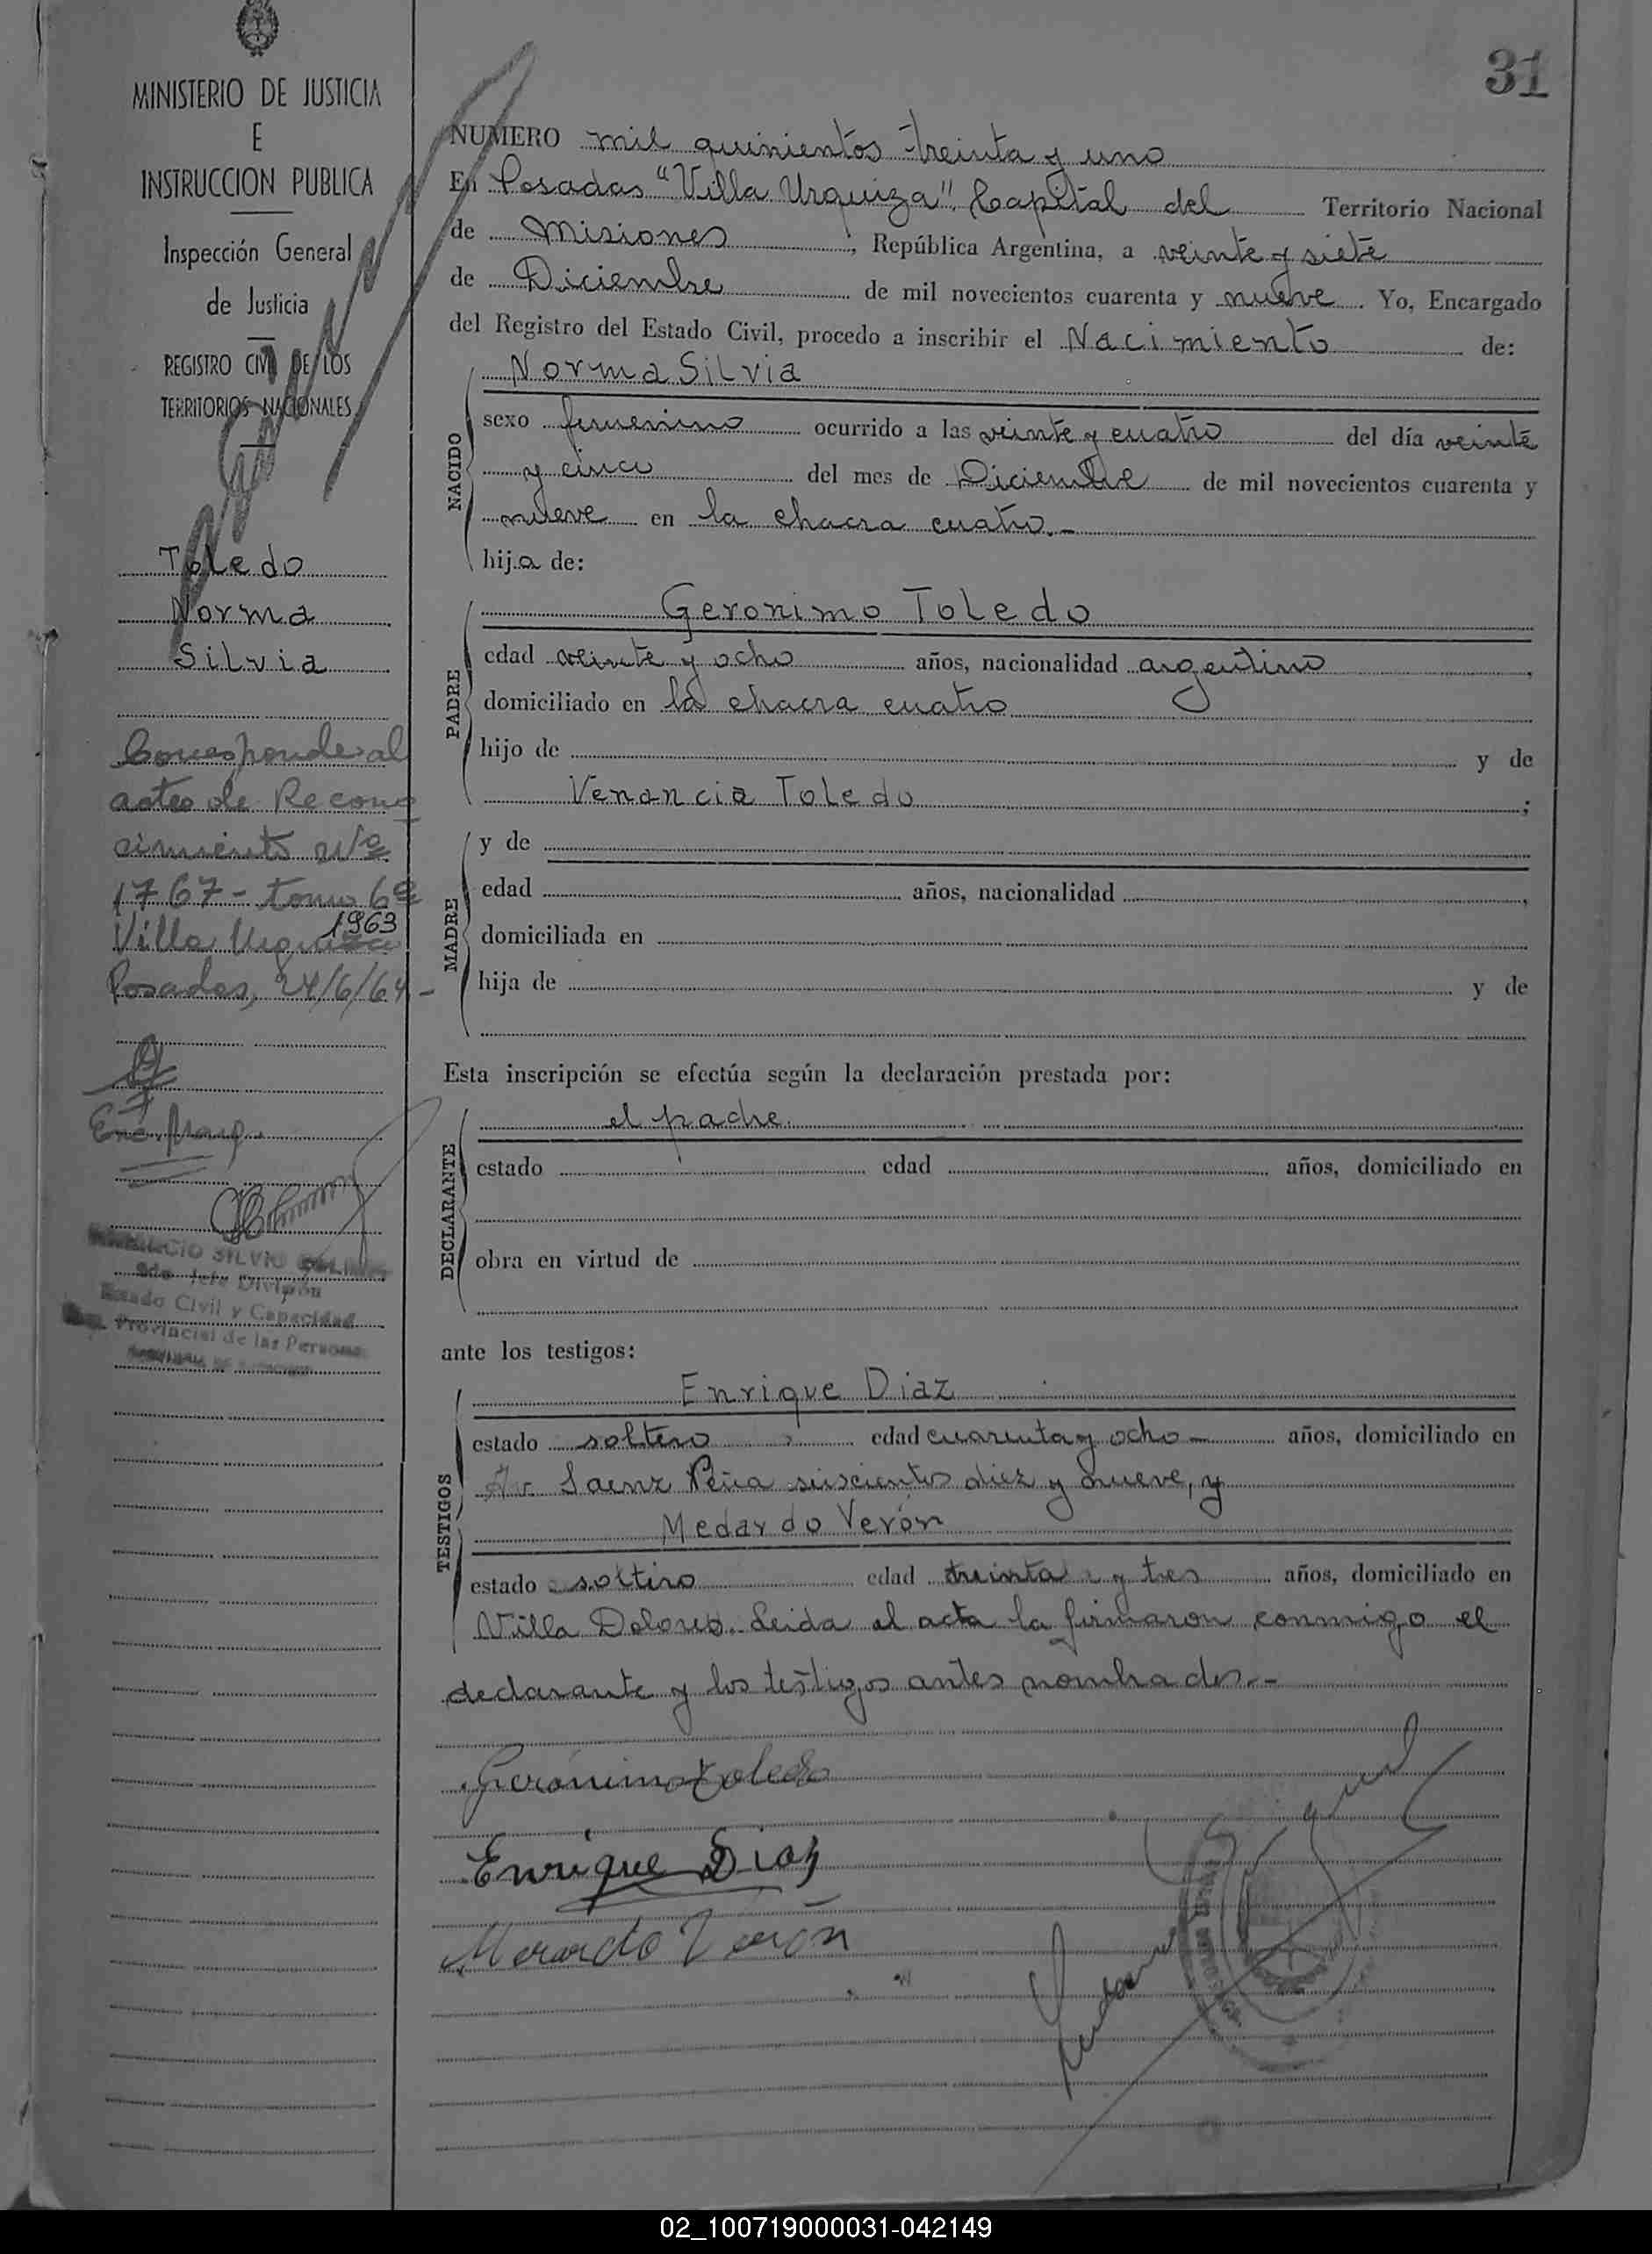 31
MINISTERIO DE JUSTICIA
E
INSTRUCCION PUBLICA
Inspección General
de Justicia
REGISTRO CIVIL DE LOS
TERRITORIOS NACIONALES
Toledo
Norma
Silvia
Corresponde al
actas de Recono
cimiento Nº
1767 - tomo 6º
1963
Villa Urquiza
Posadas, 24/6/64 -
SILVIO
2do. Jefe División
Estado Civil y Capacidad
Provincial de las Personas
NUMERO mil quinientos treinta y uno
En Posadas "Villa Urquiza". Capital del Territorio Nacional
de Misiones, República Argentina, a veinte y siete
de Diciembre de mil novecientos cuarenta y nueve. Yo, Encargado
del Registro del Estado Civil, procedo a inscribir el Nacimiento de:
NACIDO
Norma Silvia
sexo femenino ocurrido a las veinte y cuatro del día veinte
y cinco del mes de Diciembre de mil novecientos cuarenta y
nueve en la chacra cuatro.-
hija de:
PADRE
Geronimo Toledo
edad veinte y ocho años, nacionalidad argentino
domiciliado en la chacra cuatro
hijo de y de
Venancia Toledo ;
MADRE
y de
edad años, nacionalidad ,
domiciliada en
hija de y de
Esta inscripción se efectúa según la declaración prestada por:
DECLARANTE
el padre.
estado edad años, domiciliado en
obra en virtud de
ante los testigos:
TESTIGOS
Enrique Diaz
estado soltero edad cuarenta y ocho - años, domiciliado en
Av. Saenz Peña seiscientos diez y nueve, y
Medardo Verón
estado soltero edad treinta y tres años, domiciliado en
Villa Dolores. Leida el acta la firmaron conmigo el
declarante y los testigos antes nombrados.--
Gerónimo Toledo
Enrique Diaz
Merardo Verón
02_100719000031-042149